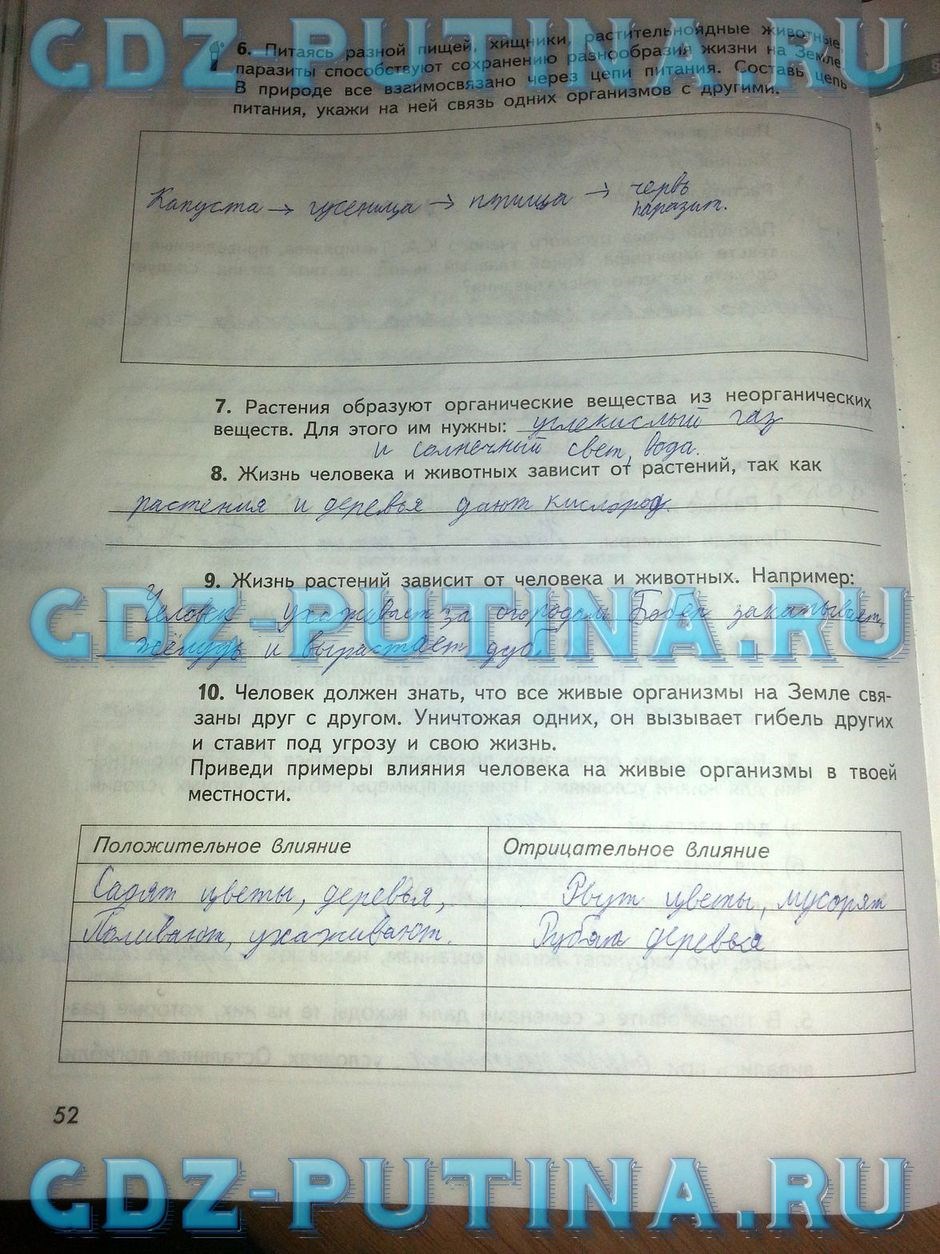 GDZ-PUTINA.RU
6. Питаясь разной пищей, хищники, растительноядные животные,
паразиты способствуют сохранению разнообразия жизни на Земле.
В природе все взаимосвязано через цепи питания. Составь цепь
питания, укажи на ней связь одних организмов с другими.
Капуста → гусеница → птица → червь
паразит.
7. Растения образуют органические вещества из неорганических
веществ. Для этого им нужны: углекислый газ
и солнечный свет, вода.
8. Жизнь человека и животных зависит от растений, так как
растения и деревья дают кислород
9. Жизнь растений зависит от человека и животных. Например:
Человек ухаживает за огородом. Бобёр закатывает
жёлудь и вырастает дуб.
GDZ-PUTINA.RU
10. Человек должен знать, что все живые организмы на Земле свя-
заны друг с другом. Уничтожая одних, он вызывает гибель других
и ставит под угрозу и свою жизнь.
Приведи примеры влияния человека на живые организмы в твоей
местности.
Положительное влияние Отрицательное влияние
Садят цветы, деревья, Рвут цветы, мусорят
Поливают, ухаживают. Рубят деревья
52
GDZ-PUTINA.RU